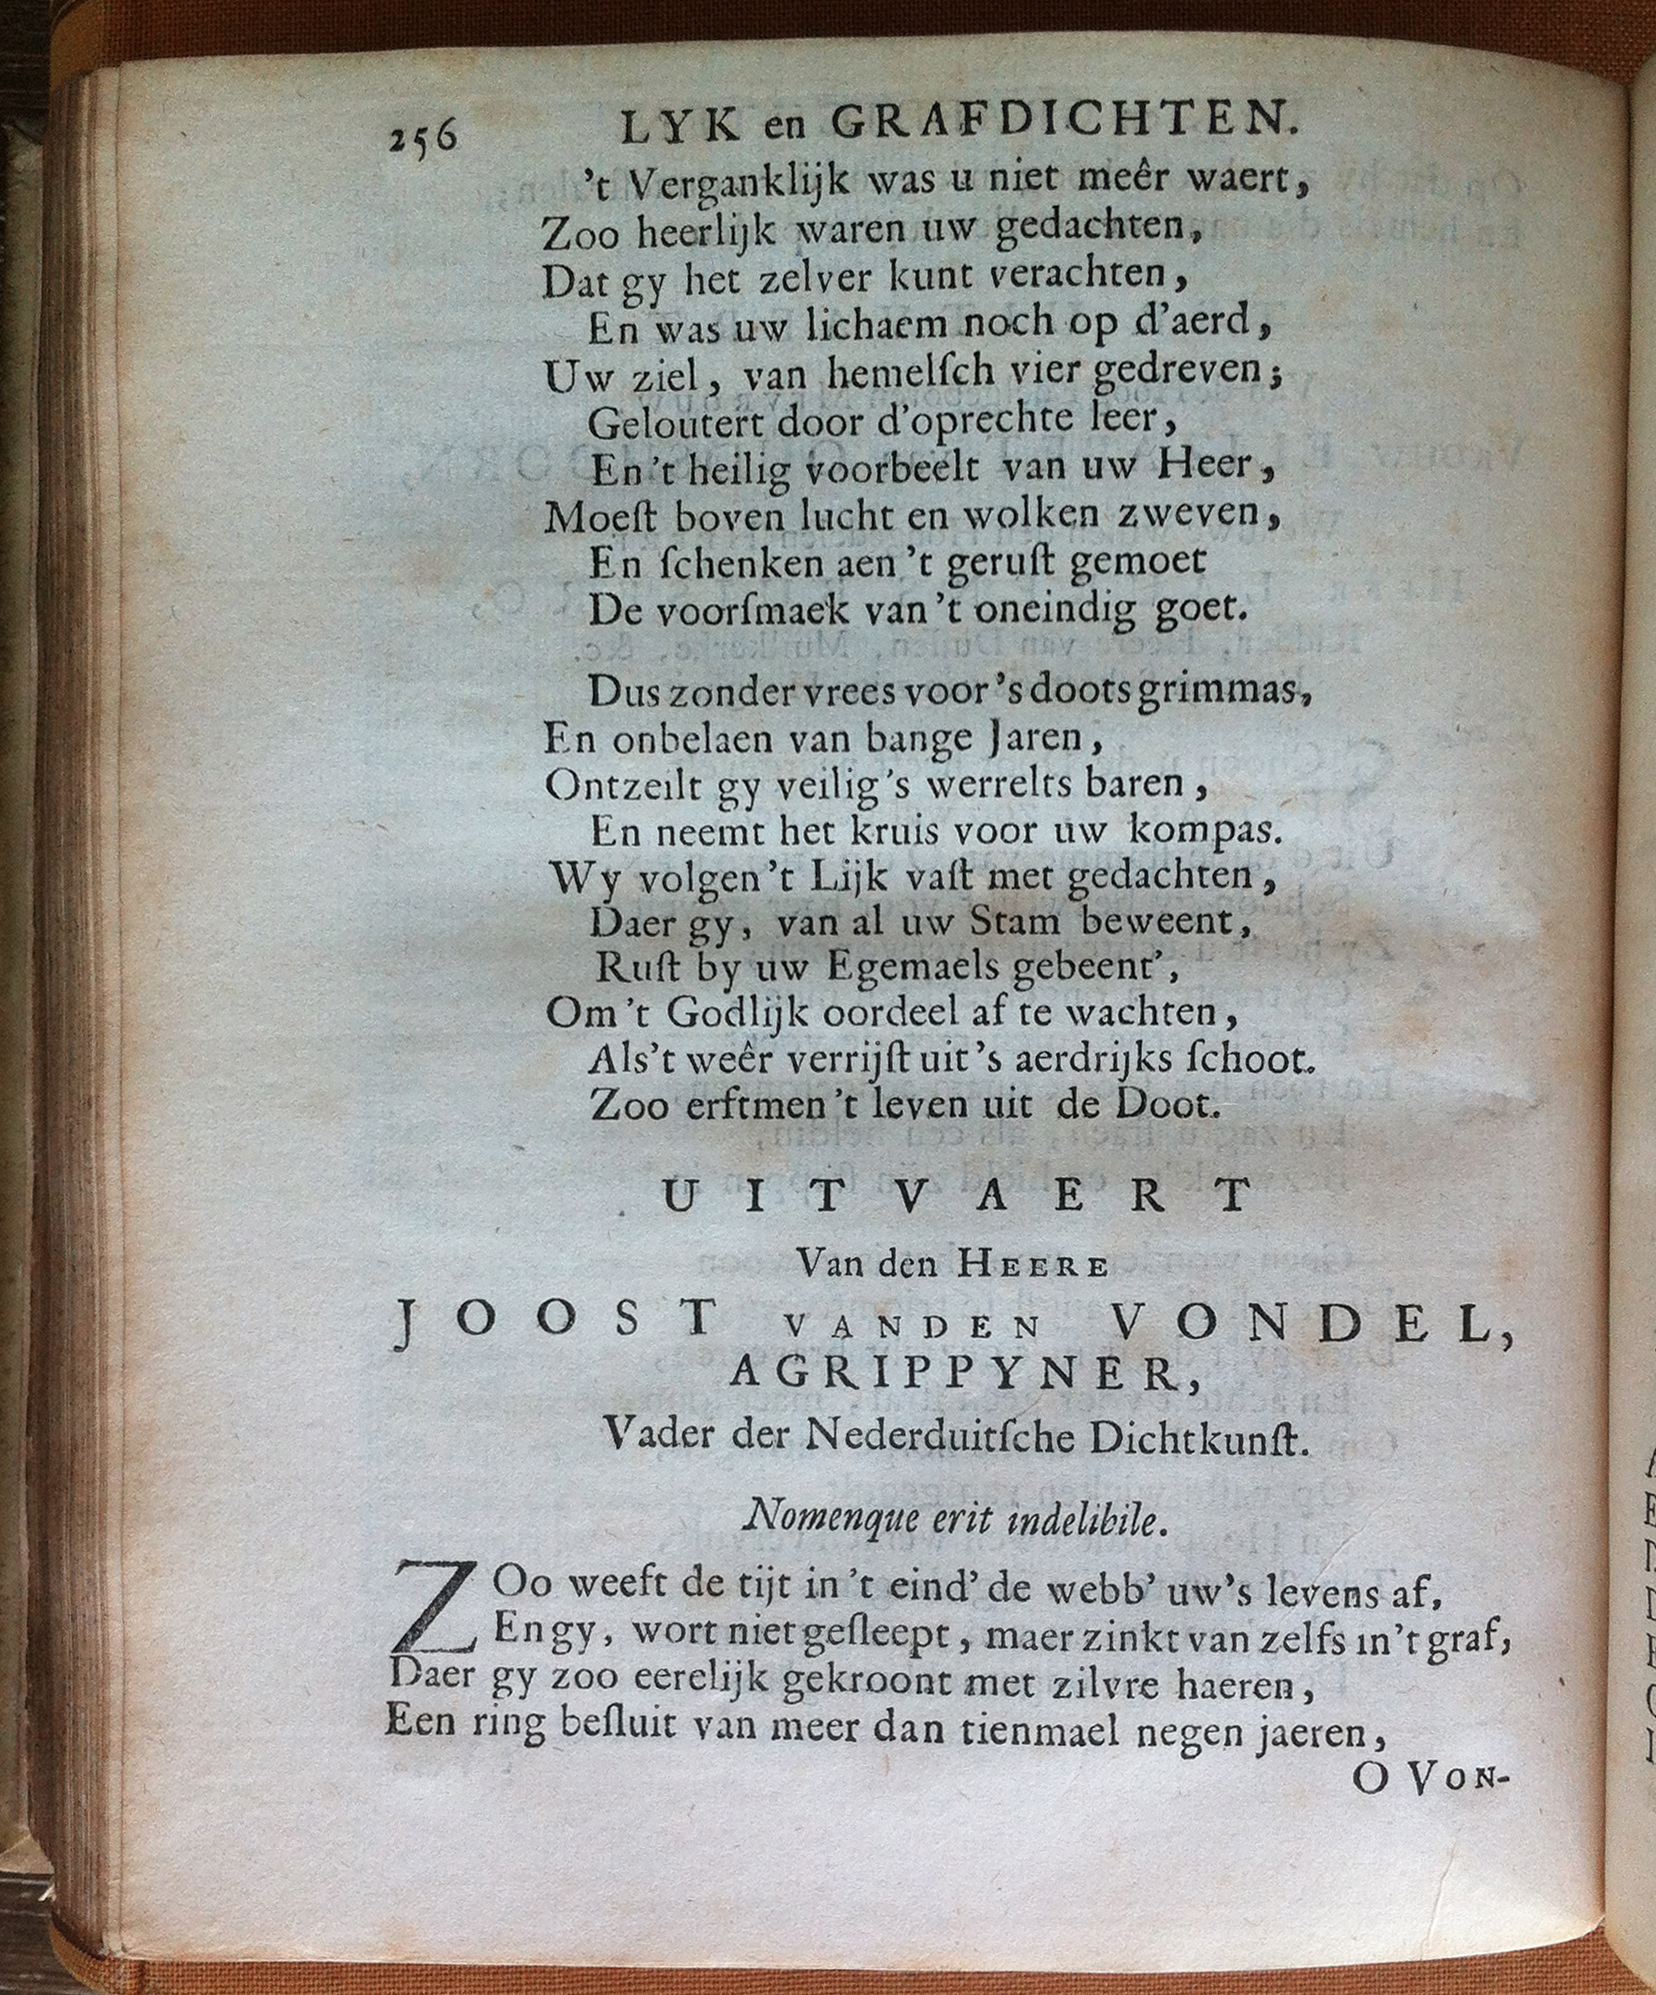 256 LYK en GRAFDICHTEN.
't Verganklijk was u niet meêr waert,
Zoo heerlijk waren uw gedachten,
Dat gy het zelver kunt verachten,
En was uw lichaem noch op d'aerd,
Uw ziel, van hemelſch vier gedreven;
Geloutert door d'oprechte leer,
En 't heilig voorbeelt van uw Heer,
Moeſt boven lucht en wolken zweven,
En ſchenken aen 't geruſt gemoet
De voorſmaek van 't oneindig goet.
Dus zonder vrees voor 's doots grimmas,
En onbelaen van bange Jaren,
Ontzeilt gy veilig 's werrelts baren,
En neemt het kruis voor uw kompas.
Wy volgen 't Lijk vaſt met gedachten,
Daer gy, van al uw Stam beweent,
Ruſt by uw Egemaels gebeent',
Om 't Godlijk oordeel af te wachten,
Als 't weêr verrijſt uit 's aerdrijks ſchoot.
Zoo erftmen 't leven uit de Doot.
UITVAERT
Van den HEERE
JOOST VANDEN VONDEL,
AGRIPPYNER,
Vader der Nederduitſche Dichtkunſt.
Nomenque erit indelibile.
ZOo weeft de tijt in 't eind' de webb' uw's levens af,
En gy, wort niet geſleept, maer zinkt van zelfs in 't graf,
Daer gy zoo eerelijk gekroont met zilvre haeren,
Een ring beſluit van meer dan tienmael negen jaeren,
O VON-